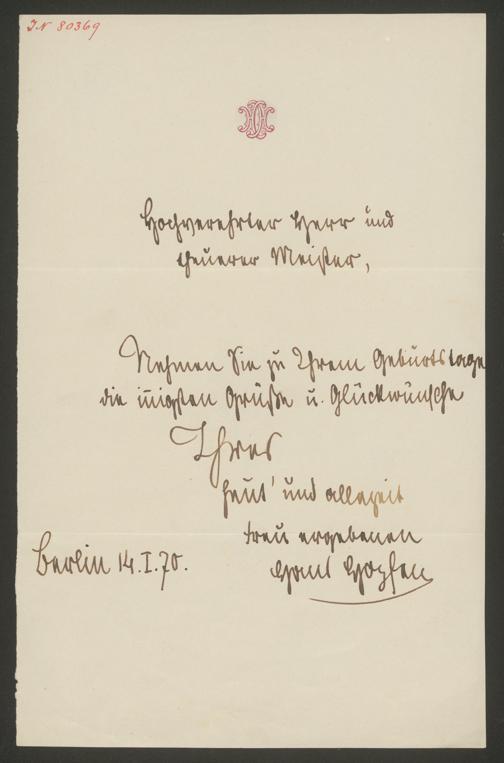 IN 80369
Hochverehrter Herr und
theuerer Meister,
Nehmen Sie zu Ihrem Geburtstage
die innigsten Grüße u. Glückwünsche
Ihres
heut' und allezeit
treu ergebenen
Hans Hopfen
Berlin 14.I.70.